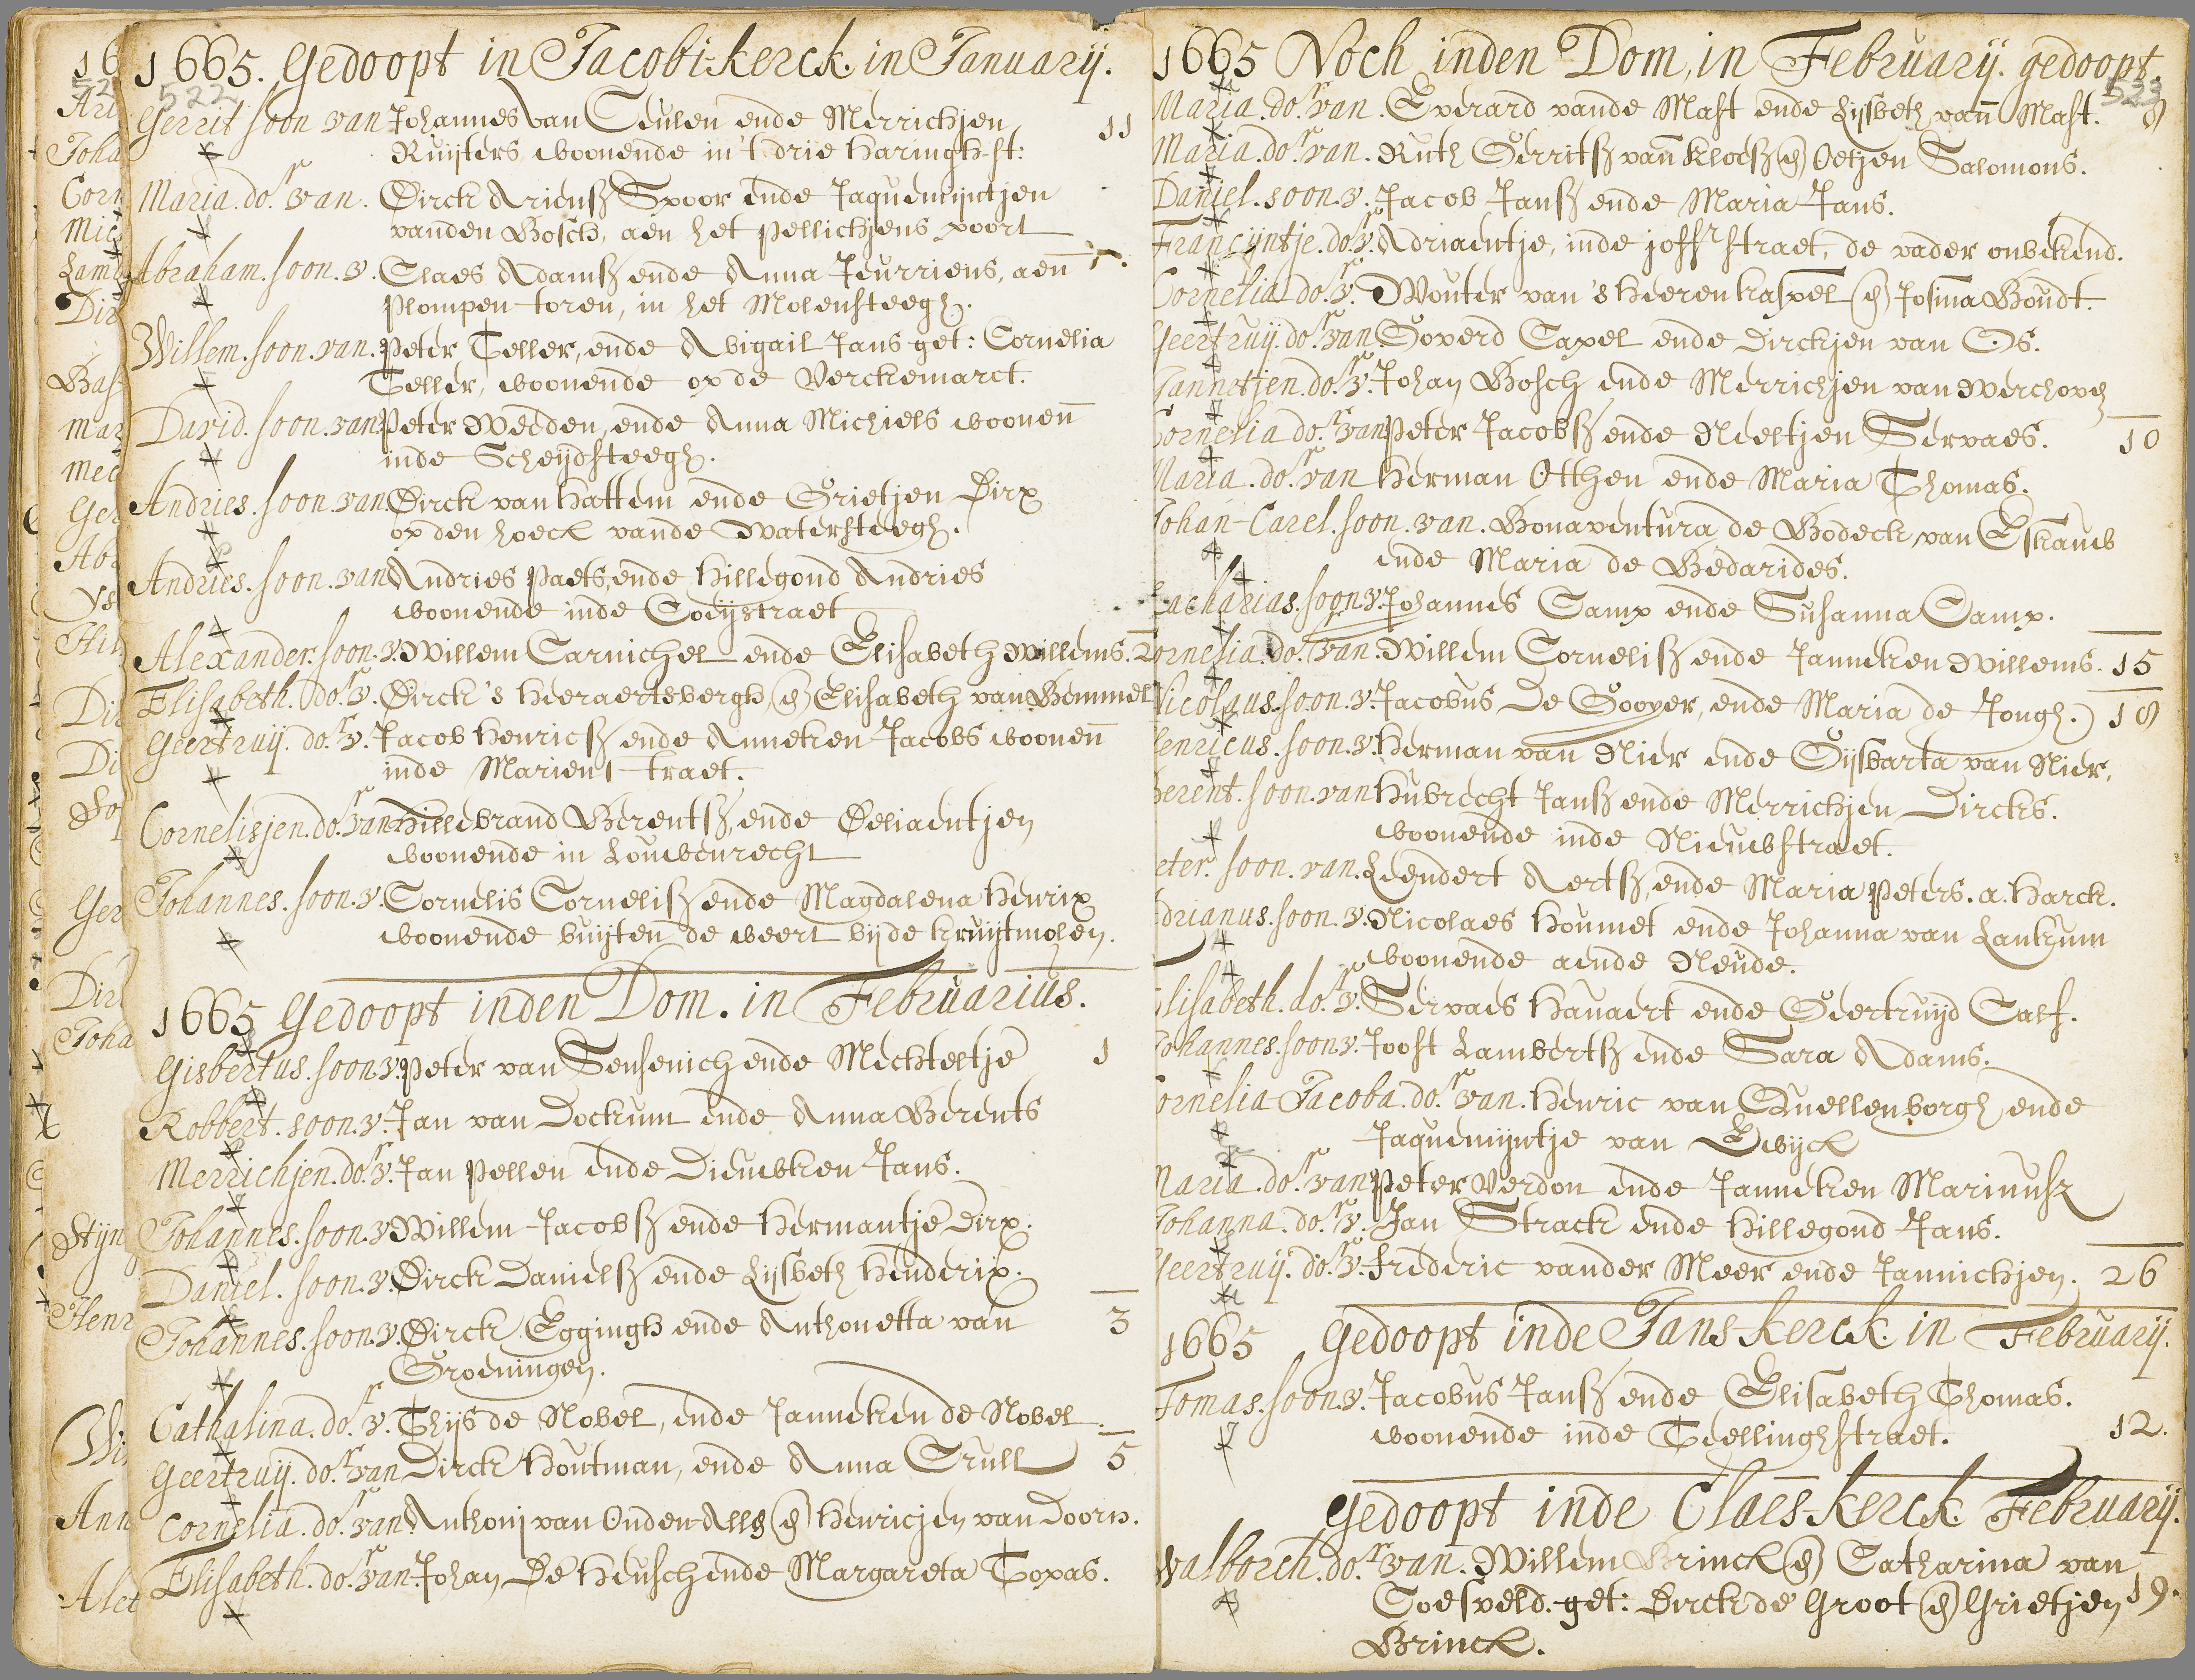 1665. Gedoopt in Jacobi-kerck. in January.
522
Gerrit soon van Johannes van Ceulen ende Merrichjen 11
Ruijters woonende in 't drie Haringh-st:
Maria. dor. van. Dirck Ariensz Spoor ende Jaquemijntjen
vanden Bosch, aen het pellichjens poort
Abraham. soon. v. Claes Adamsz ende Anna Jeurriens, aen
Plompen-toren, in het Molensteegh.
Willem. soon. van. Peter Teller, ende Abigail Jans get: Cornelia
Teller, woonende op de Verckemarct.
David. soon. van Peter Weeden, ende Anna Michiels woonen̄
inde Scheijdsteegh.
Andries. soon. van Dirck van Hattem ende Grietjen Dirx
op den hoeck vande Watersteegh.
Andries. soon. van Andries Paets, ende Hillegond Andries
woonende inde Coeystraet
Alexander. soon. v. Willem Carnichel ende Elisabeth Willems.
Elisabeth. dor. v. Dirck 's Heeraertsbergh, (en) Elisabeth van Bemmel
Geertruij. dor. v. Jacob Henricsz ende Anneken Jacobs woonen̄
inde Marienstraet.
Cornelisjen. dor. van Hillebrand Berentsz, ende Deliaentjen
woonende in Louwenrecht
Johannes. soon. v. Cornelis Cornelisz ende Magdalena Henrix
woonende buijten de weert bijde Kruijtmolen.
1665 Gedoopt inden Dom. in Februarius.
Gisbertus. soon. v. Peter van Sensenich ende Mechteltje 1
Robbert. soon. v. Jan van Dockum ende Anna Berents
Merrichjen. dor. v. Jan Pellen ende Dieuwken Jans.
Johannes. soon. v. Willem Jacobsz ende Hermantje Dirx.
Daniel. soon. v. Dirck Danielsz ende Lijsbeth Henderix.
Johannes. soon. v. Dirck Eggingh ende Anthonetta van 3
Groeningen.
Cathalina. dor. v. Thijs de Nobel, ende Janneken de Nobel.
Geertruij. dor. van Dirck Houtman, ende Anna Crull 5
Cornelia. dor. van Anthonij van Ouden-Allg (en) Henricjen van Doorn.
Elisabeth. dor. van Johan De Heusch ende Margareta Copas.
1665 Noch inden Dom, in February. gedoopt.
523
Maria. dor. van. Everard vande Mast ende Lijsbeth van̄ Mast. 9
Maria. dor. van. Ruth Gerritsz van Kloesz (en) Oetjen Salomons.
Daniel. soon. v. Jacob Jansz ende Maria Jans.
Francijntje. dor. v. Adriaentje, inde joffr straet, de vader onbekend.
Cornelia dor. v. Wouter van 's Heerenkaspel (en) Josina Boudt.
Geertruij. dor. van Goverd Capel ende Dirckjen van Os.
Jannetjen. dor. v. Johan Bosch ende Merrichjen van Werchoven
Cornelia dor. van Peter Jacobsz ende Neeltjen Servaes. 10
Maria. dor. van Herman Otthen ende Maria Thomas.
Johan-Carel. soon. van. Bonaventura de Bodeck van
ende Maria de Bedarides.
Zacharias. soon. v. Johannes Camp ende Susanna Camp.
Cornelia. dor. van. Willem Cornelisz ende Janneken Willems. 15
Nicolaus. soon. v. Jacobus De Gooyer, ende Maria de Jongh. 19
Henricus. soon. v. Herman van Nier ende Gijsbarta van Nier.
Berent. soon. van Hubrecht Jansz ende Merrichjen Dircks.
woonende inde Nieuwstraet.
Peter. soon. van. Leendert Aertsz, ende Maria Peters. a. Harck.
Adrianus. soon. v. Nicolaes Houmet ende Johanna van Lankum
woonende aende Neude.
Elisabeth. dor. v. Servaes Havaert ende Geertruijd Calf.
Johannes. soon v. Joost Lambertsz ende Sara Adams.
Cornelia Jacoba. dor. van. Henric van Quellenborgh ende
Jaquemijntje van Ewijck
Maria. dor. van Peter Verdon ende Janneken Marinusz
Johanna. dor. v. Jan Strack ende Hillegond Jans.
Geertruij. dor. v. Frederic vander Meer ende Jannichjen. 26
1665 Gedoopt inde Jans-kerck. in February.
Tomas. soon. v. Jacobus Jansz ende Elisabeth Thomas.
woonende inde Teellinghstraet. 12.
Gedoopt inde Claes-kerck. February.
Walborch. dor. van. Willem Brinck (en) Catharina van
Coesveld. get: Dirck de Groot (en) Grietjen 19.
Brinck.